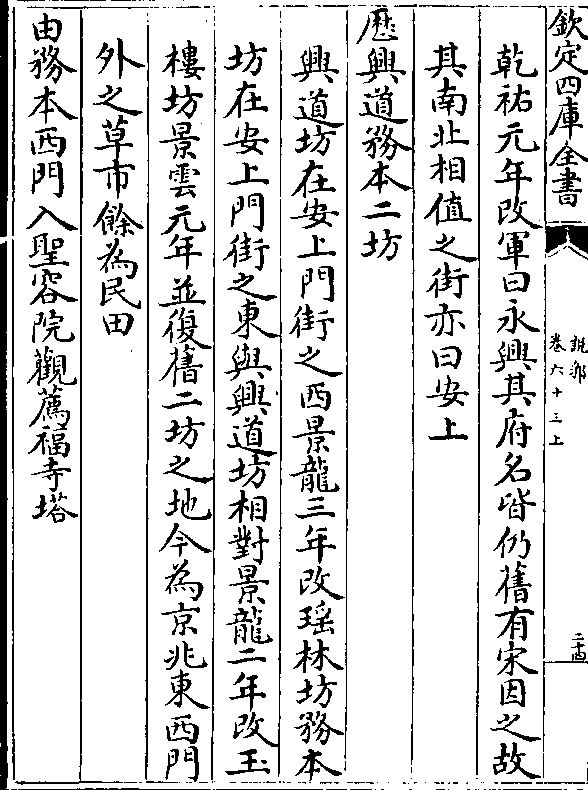 欽定四庫全書
說郛
卷六十三上
二十四
乾祐元年改軍曰永興其府名皆仍舊有宋因之故
其南北相值之街亦曰安上
歷興道務本二坊
興道坊在安上門街之西景龍三年改瑶林坊務本
坊在安上門街之東與興道坊相對景龍二年改玉
樓坊景雲元年並復舊二坊之地今為京兆東西門
外之草市餘為民田
由務本西門入聖容院觀薦福寺塔